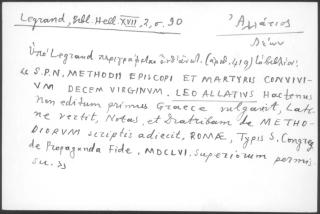 Legrand, Bibl. Hell. XVII, 2, σ. 90
Ἀλλάτιος
Λέων
Ὑπὸ Legrand περιγράφεται (ἀριθ. 419) τὸ βιβλίον:
S. P. N. METHODII EPISCOPI ET MARTYRIS CONVIVI-
VM DECEM VIRGINVM. LEO ALLATIVS Hactenus
Non editum primus Graece vulgavit, Lati-
ne vertit, Notas, et Diatribam de METHO-
DIORVM scriptis adiecit, ROMÆ, Typis S. Congreg
de Propaganda Fide. MDCLVI. Superiorum permis-
su.